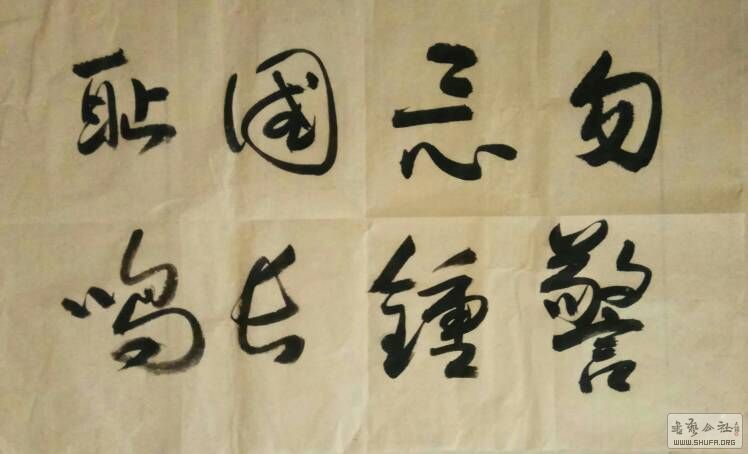 勿忘國耻
警鍾長鳴
书艺公社
WWW.SHUFA.ORG